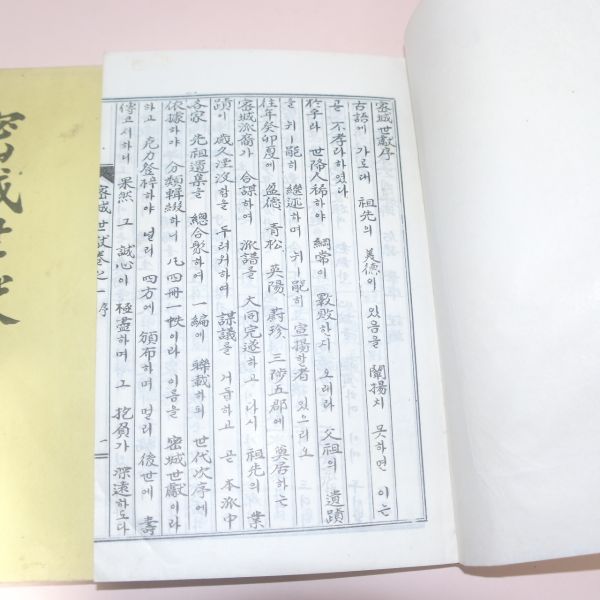 密城世獻序
古語에 가로대 祖先의 美德이 있음을 闡揚치 못하면 이는
곧 不孝라하였다
於乎라 世降人稀하야 綱常이 斁敗한지 오래라 父祖의 遺蹟
을 뉘ㅣ 能히 繼述하며 뉘ㅣ 能히 宣揚할者 있으리오
往年癸卯夏에 盈德 青松 英陽 蔚珍 三陟五郡에 奠居하는
密城派裔가 合謀하여 派譜를 大同完遂하고 다시 祖先의 業
蹟이 歲久湮沒함을 두려워하여 謀議를 거듭하고 곧 本派中
各家 先祖遺集을 總合聚하여 一編에 聯載하되 世代次序에
依據하야 分類輯綴하니 凡四冊一帙이라 이름을 密城世獻이라
하고 그力登梓하야 널리 四方에 頒布하며 멀리 後世에 壽
傳코저하니 果然 그 誠心이 極盡하며 그 抱負가 深遠하도다
密城世獻卷之一 序 一
密城世獻